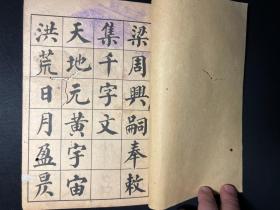 梁周興嗣奉敕
集千字文
天地元黃宇宙
洪荒日月盈昃